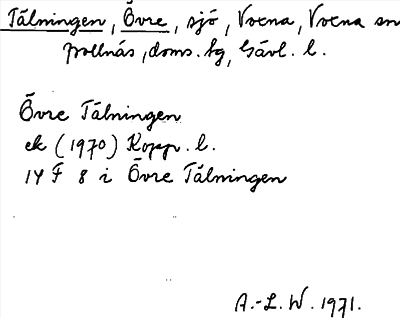 Tälningen, Övre, sjö, Voxna, Voxna sn
Bollnäs, doms. hg, Gävl. l.
Övre Tälningen
ek (1970) Kopp. l.
14 F 8 i Övre Tälningen
A.-L. W. 1971.